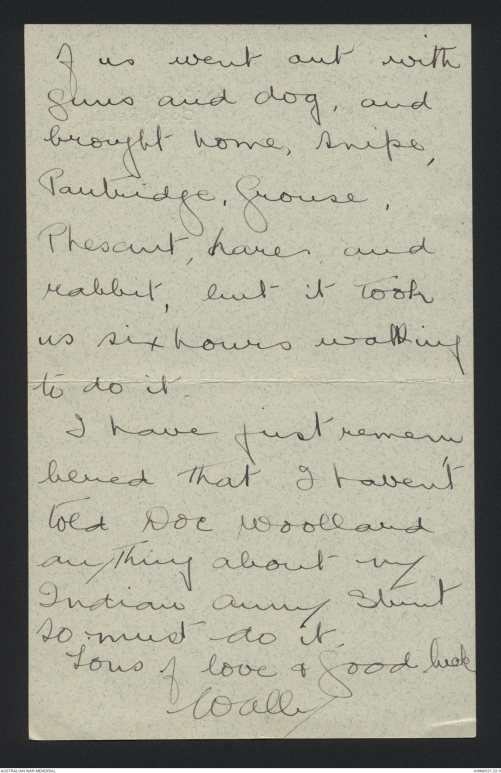 of us went out with
guns and dog, and
brought home, snipe,
Partridge, Grouse,
Phesant, hares and
rabbit, but it took
us six hours walking
to do it.
I have just remem
bered that I haven't
told Doc Woolland
anything about my
Indian Army Stunt
so must do it.
Tons of love & good luck
Wally
AUSTRALIAN WAR MEMORIAL